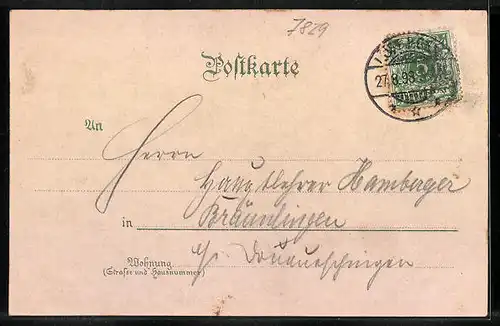 7829
Postkarte
27.8.98
An
Herrn
Hauptlehrer Hamberger
in Bräunlingen
b/ Donaueschingen
Wohnung
(Straße und Hausnummer)